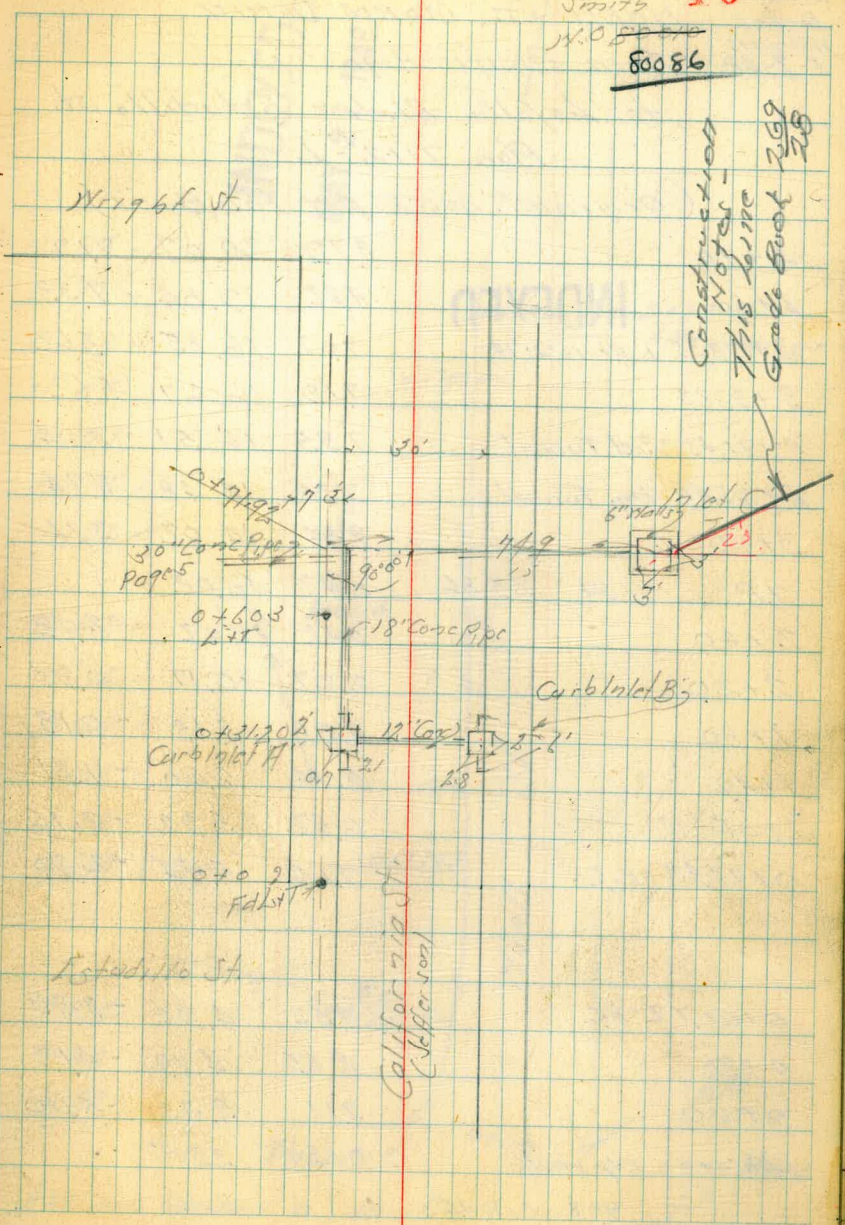 Smith
W.O.
80086
Construction
Notes -
This Line
Grade Book 269
28
Wright St.
30'
0+71.92
7' 3'
6" Walls
Inlet C
30" Conc Pipe
Page 5
90°00'
74.9
23
5'
0+60.3
L+T
18" Conc Pipe
Curb Inlet B
0+31.20 2'
Curb Inlet A
12" Conc
2' 6'
0.7
2.1
2.8
0+0
Fd L+T
Estudillo St.
California St.
(Jefferson)